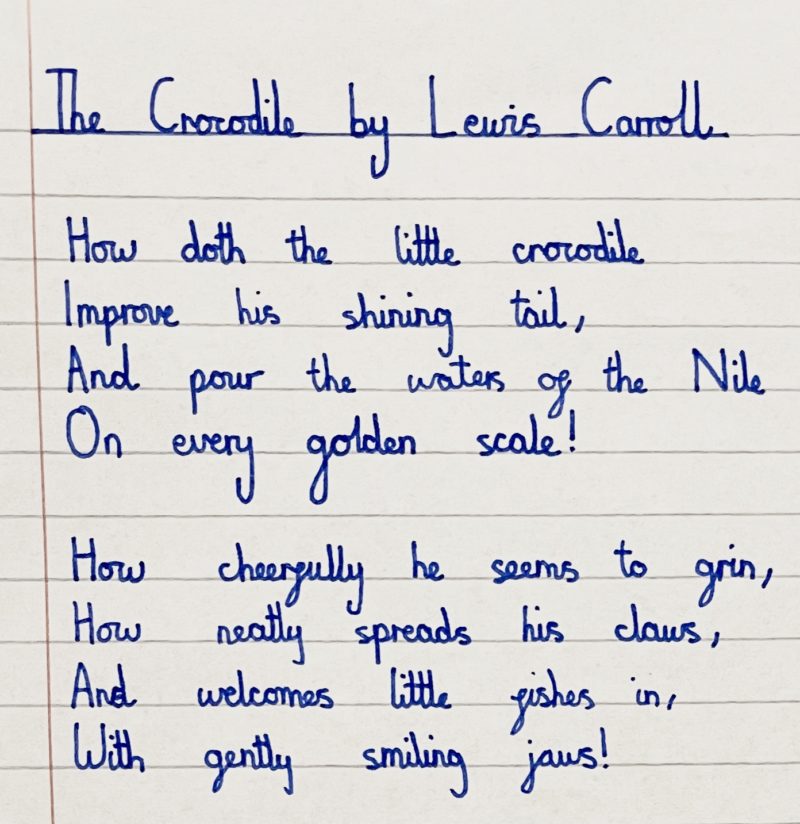 The Crocodile by Lewis Carroll
How doth the little crocodile
Improve his shining tail,
And pour the waters of the Nile
On every golden scale!
How cheerfully he seems to grin,
How neatly spreads his claws,
And welcomes little fishes in,
With gently smiling jaws!